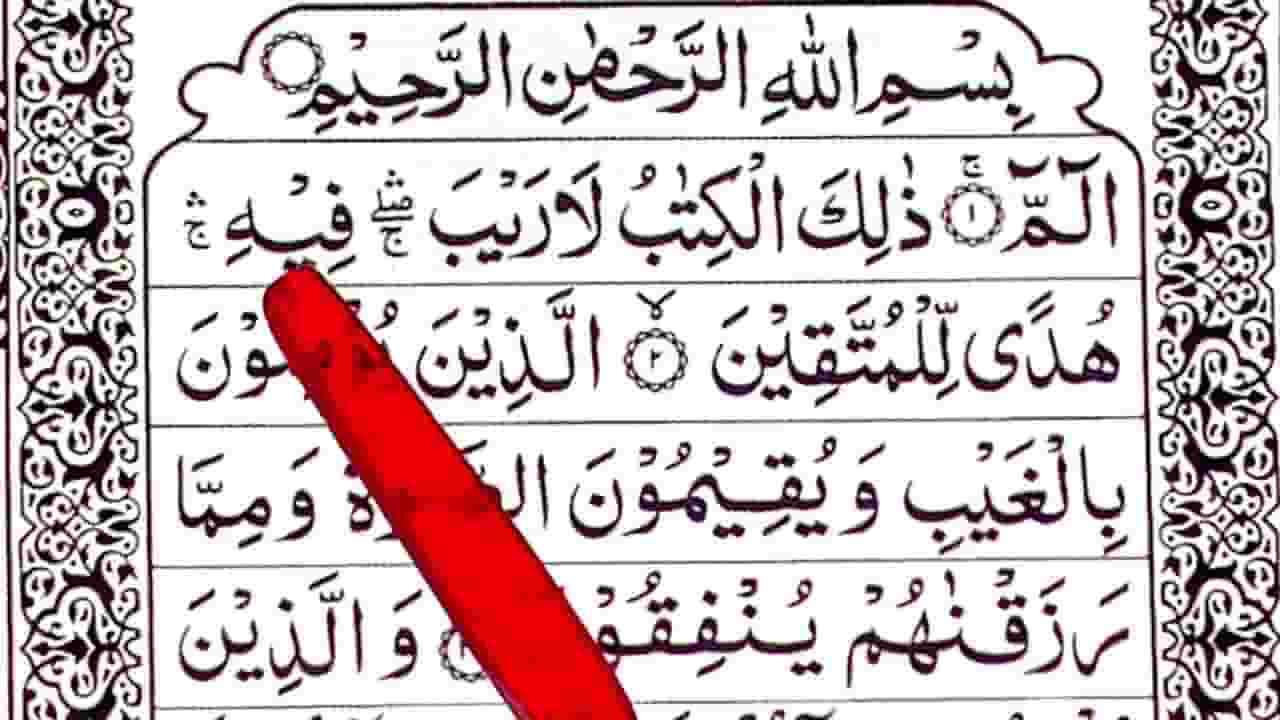 بِسْمِ اللهِ الرَّحْمٰنِ الرَّحِيْمِ
الٓمّٓ ۚ ١ ذٰلِكَ الْكِتٰبُ لَا رَيْبَ ۛۚ فِيْهِ ۛۚ
هُدًى لِّلْمُتَّقِيْنَ ۙ ٢ الَّذِيْنَ
بِالْغَيْبِ وَ يُقِيْمُوْنَ وَ مِمَّا
رَزَقْنٰهُمْ وَ الَّذِيْنَ